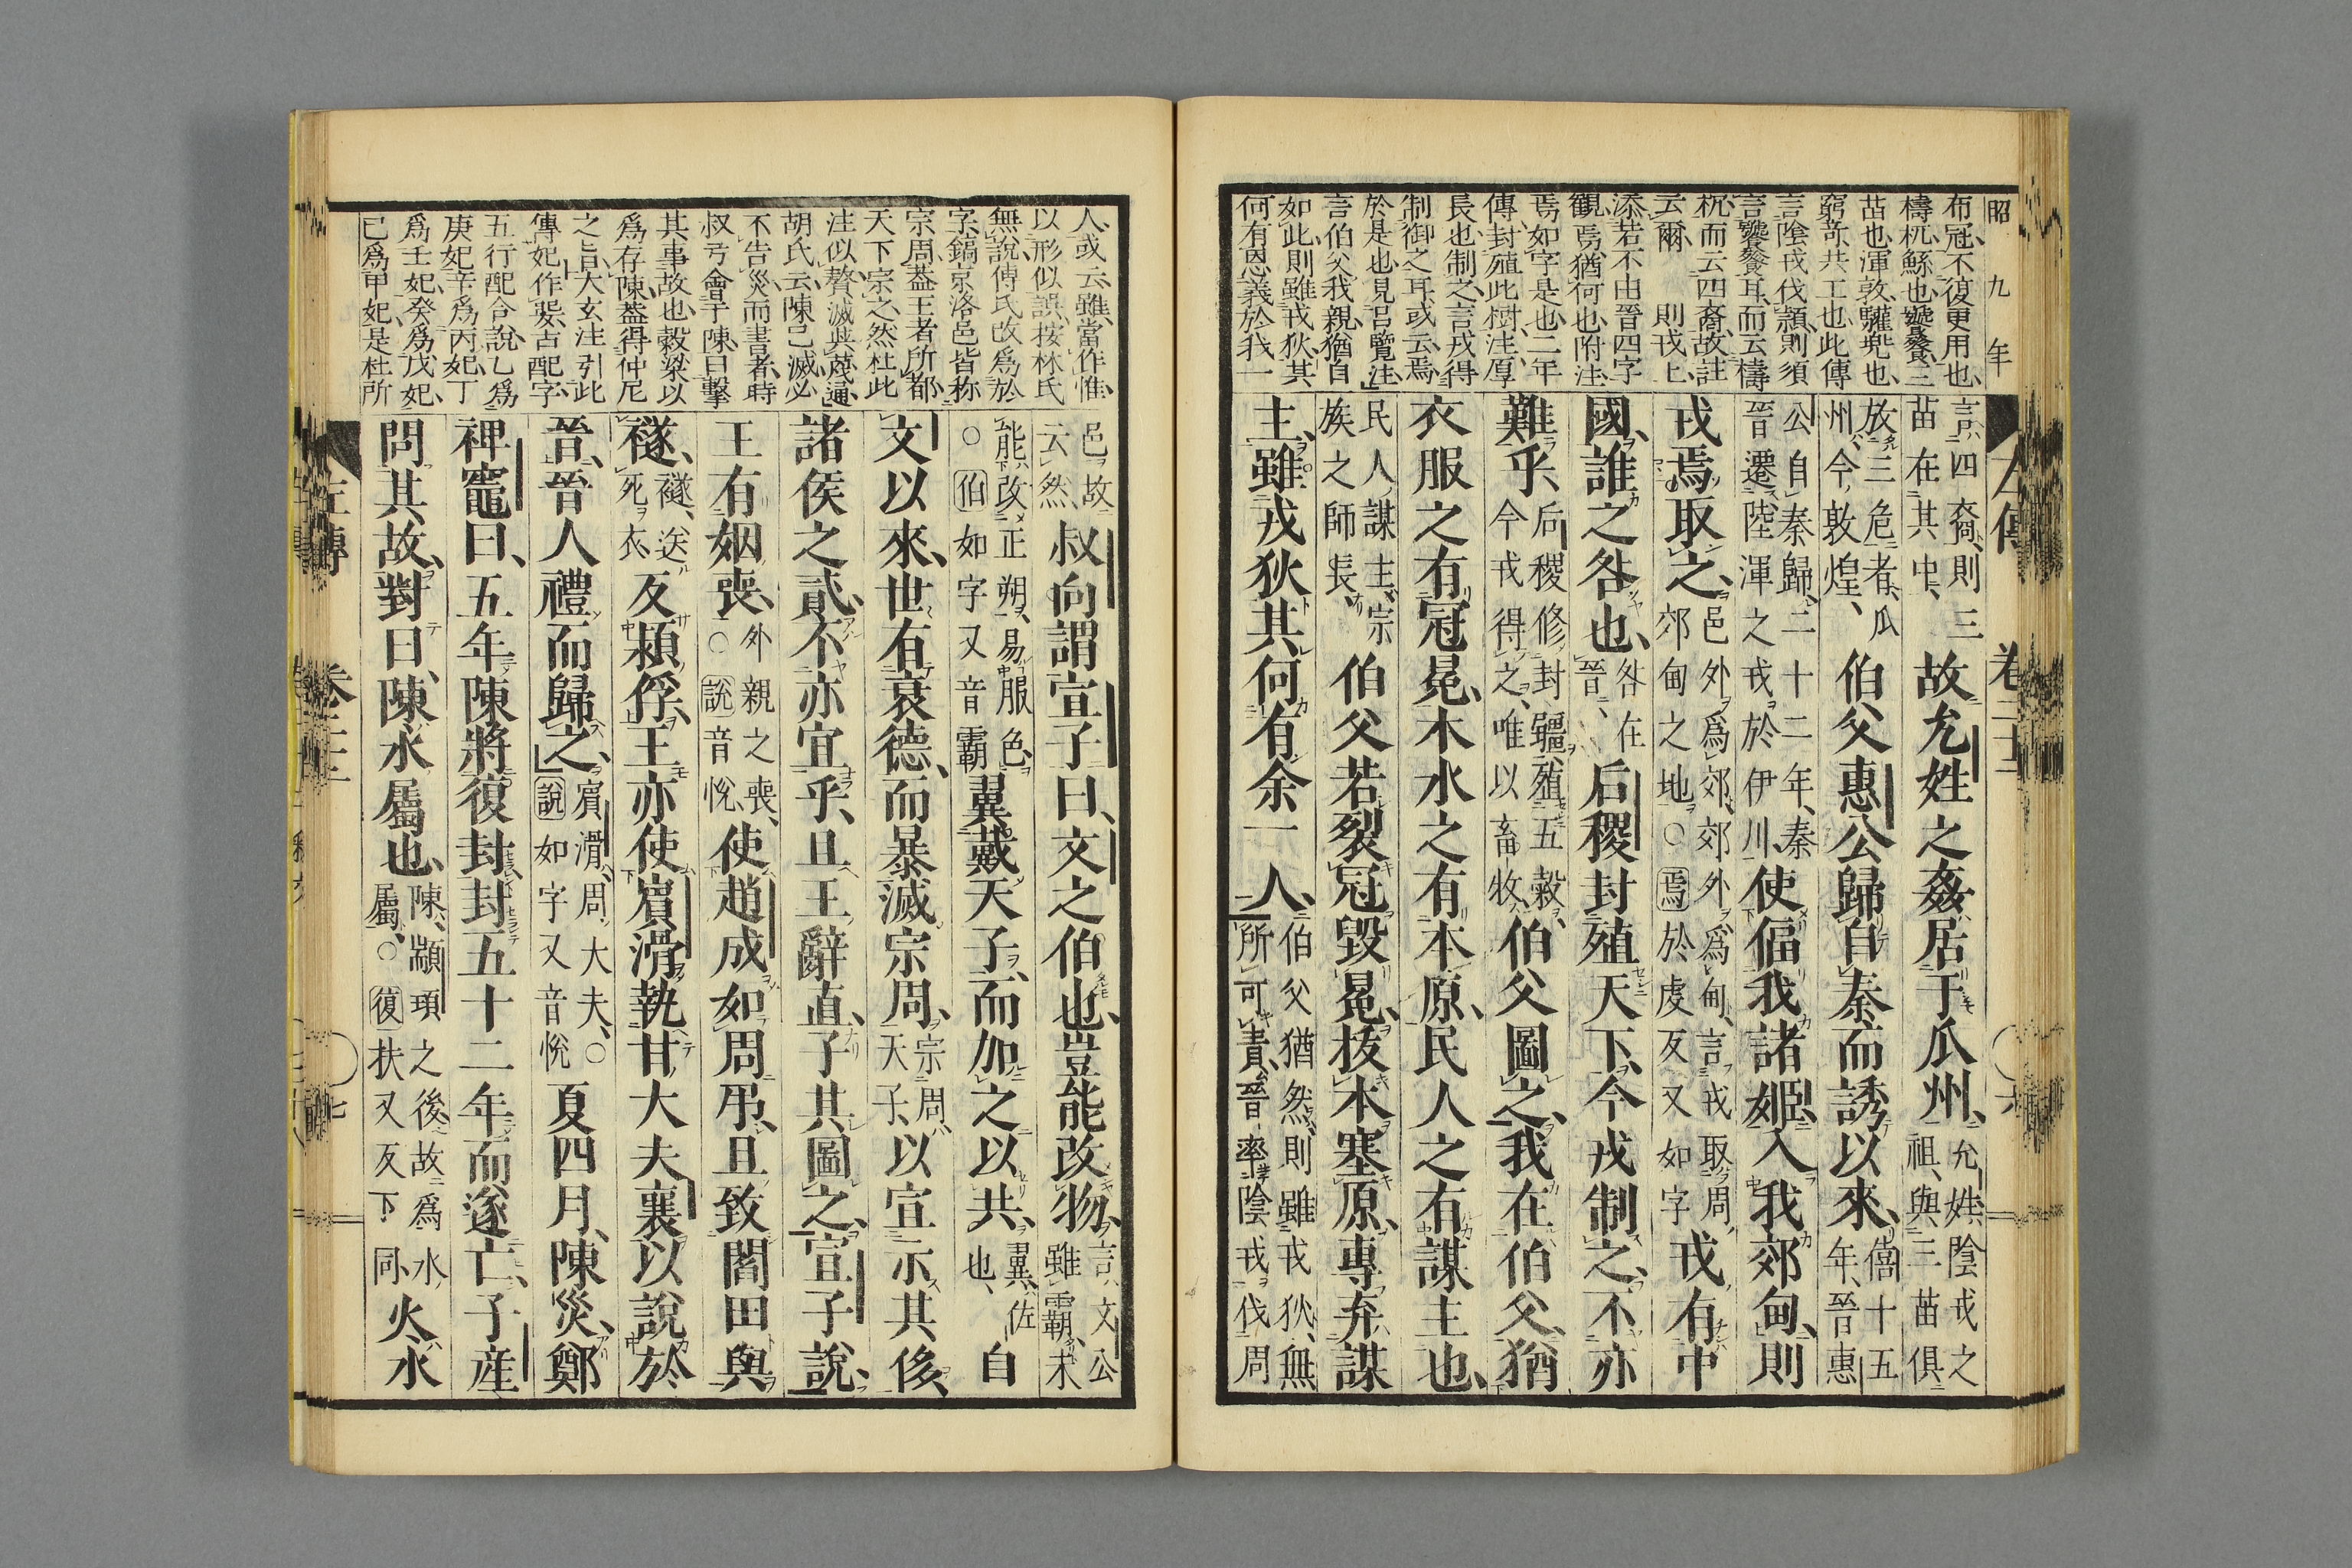 昭九年
布冠、不復更用也、
檮杌鯀也、饕餮三
苗也、渾敦驩兜也、
窮奇共工也、此傳
言陰戎伐潁、則須
言饕餮耳、而云檮
杌而云四裔、故註
云爾、　則戎上
添若不由晋四字
觀焉、猶何也、附注
焉如字是也、二年
傳封殖此樹、注厚
長也、制之言戎得
制御之耳、或云焉
於是也、見呂覽注、
言伯父我親、猶自
如此、則雖戎狄其
何有恩義於我一
左傳　卷二十二　六
言四裔、則三苗在其中、故允姓之姦居于瓜州、允姓陰戎之祖、與三苗俱
放三危者、瓜州今敦煌、伯父惠公歸自秦而誘以來、僖十五年、晉惠
公自秦歸、二十二年、秦晉遷陸渾之戎於伊川、使偪我諸姬入我郊甸、則
戎焉取之、邑外爲郊、郊外爲甸、言戎取周郊甸之地、○焉於虔反又如字戎有中
國、誰之咎也、咎在晉、后稷封殖天下、今戎制之、不亦
難乎、后稷修封疆、殖五穀、今戎得之、唯以畜牧、伯父圖之、我在伯父、猶
衣服之有冠冕、木水之有本原、民人之有謀主也、
民人謀主、宗族之師長、伯父若裂冠毀冕、拔本塞原、專弃謀
主、雖戎狄其何有余一人、伯父猶然、則雖戎狄無所可責、晉率陰戎伐周
人、或云、雖當作惟、
以形似誤、按林氏
無說、傅氏改爲於
字、鎬京洛邑皆称
宗周、蓋王者所都、
天下宗之、然杜此
注似贅、滅與蔑通、
胡氏云、陳已滅必
不告災、而書者、時
叔弓會于陳、目擊
其事故也、穀梁以
爲存陳、蓋得仲尼
之旨、大玄注引此
傳妃作娶、古配字、
五行配合說、乙爲
庚妃、辛爲丙妃、丁
爲壬妃、癸爲戊妃、
已爲甲妃、是杜所
邑、故云然、叔向謂宣子曰、文之伯也、豈能改物、言文公雖霸、未
能改正朔、易服色、○伯如字又音霸翼戴天子、而加之以共、翼、佐也、自
文以來、世有衰德、而暴滅宗周、宗周天子、以宣示其侈、
諸侯之貳、不亦宜乎、且王辭直、子其圖之、宣子說、
王有姻喪、外親之喪、○說音悅、使趙成如周弔、且致閻田與
襚、襚、送死衣、反潁俘、王亦使賓滑執甘大夫襄以說於
晉、晉人禮而歸之、賓滑、周大夫、○說如字又音悅夏四月、陳災、鄭
裨竈曰、五年陳將復封、封五十二年而遂亡、子産
問其故、對曰、陳水屬也、陳、顓頊之後、故爲水屬、○復扶又反下同、火水
左傳　卷二十二　七